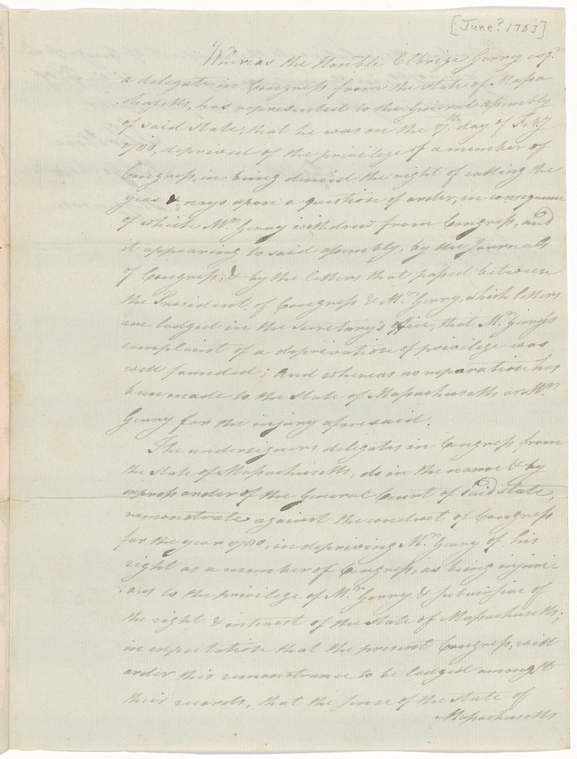 [June? 1783]
Whereas the Honble Elbrige Gerry esqr
a delegate in Congress from the State of Massa
chusetts, has represented to the General assembly
of said State, that he was on the day of Feby
1780, deprived of the privilege of a member of
Congress, in being denied the right of calling the
yeas & nays upon a question of order, in consequence
of which Mr. Gerry withdrew from Congress, and
it appearing to said assembly, by the Journals
of Congress, & by the letters that passed between
the President of Congress & Mr. Gerry, which letters
are lodged in the Secretary's office, that Mr. Gerry's
complaint of a deprivation of privilege was
well founded; And whereas no reparation has
been made to the State of Massachusetts or Mr.
Gerry for the injury aforesaid.
The undersigners delegates in Congress, from
the State of Massachusetts, do in the name & by
express order of the General Court of said State,
remonstrate against the conduct of Congress
for the year 1780, in depriving Mr. Gerry of his
right as a member of Congress, as being injuri-
:ous to the privilege of Mr. Gerry & subversive of
the right & interest of the State of Massachusetts;
in expectation that the present Congress, will
order this remonstrance to be lodged amongst
their records, that the sense of the State of
Massachusetts